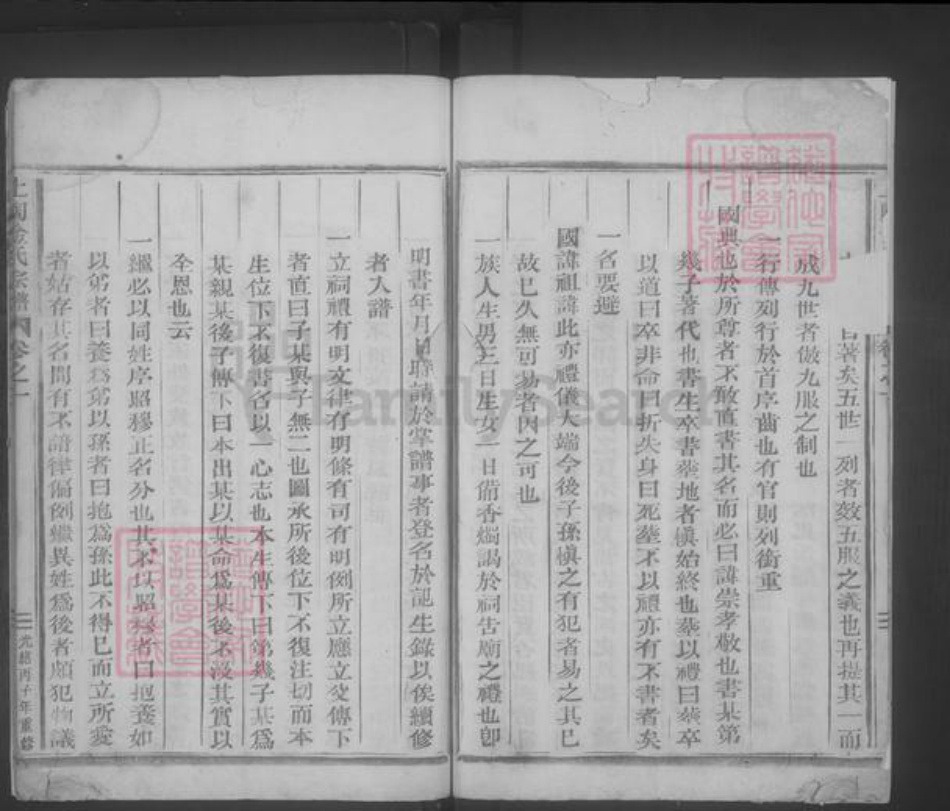 昌著矣五世一列者效五服之義也再提其一而
成九世者倣九服之制也
一行傳列行於首序齒也有官則列銜重
國典也於所尊者不敢直書其名而必曰諱崇孝敬也書某第
幾子著代也書生卒書塟地者愼始終也塟以禮曰塟卒
以道曰卒非命曰折失身曰死塟不以禮亦有不書者矣
一名要避
國諱祖諱此亦禮儀大端今後子孫愼之有犯者易之其已
故已久無可易者因之可也
一族人生男三日生女一日備香燭謁於祠告廟之禮也卽
明書年月日時請於掌譜事者登名於記生錄以俟續修
者入譜
一立祠禮有明文律有明條有司有明例所立應立爻傳下
者直曰子某與子無二也圖承所後位下不復注切而本
生位下不復書名以一心志也本生傳下曰第幾子某爲
某親某後子傳下曰本出某以某命爲某後不沒其實以
全恩也云
一繼必以同姓序昭穆正名分也其不以昭穆者曰抱養如
以弟者曰養爲弟以孫者曰抱爲孫此不得已而立所愛
者姑存其名間有不諳律偏例繼異姓爲後者頗犯物議
氏宗譜
卷之一
光緒丙子年重修
FamilySearch